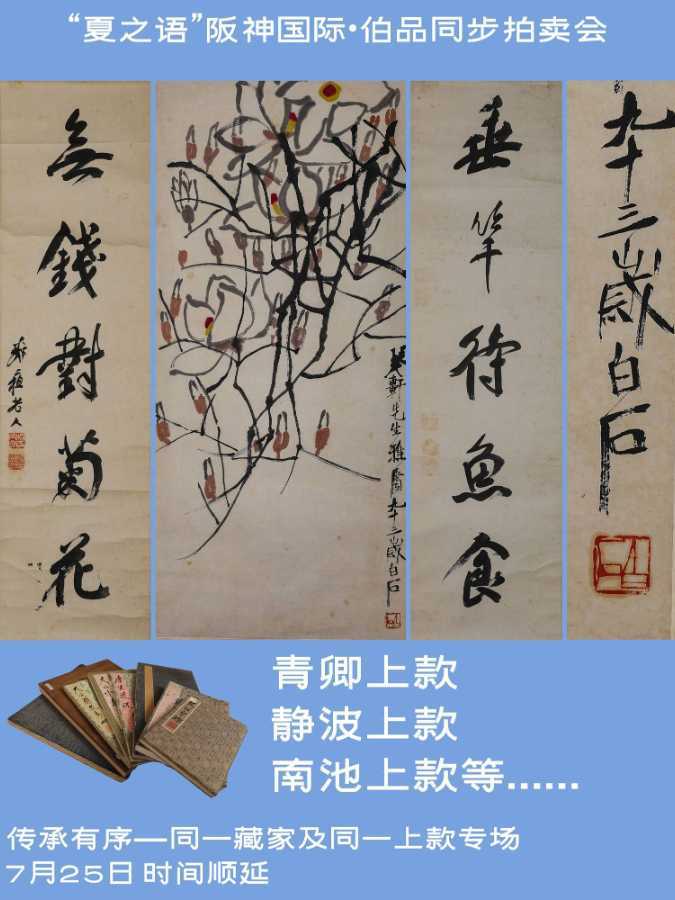 “夏之语”阪神国际•伯品同步拍卖会
無錢對菊花
老人
軒先生雅屬九十三歲白石
垂竿待魚食
九十三歲白石
青卿上款
静波上款
南池上款等......
传承有序—同一藏家及同一上款专场
7月25日 时间顺延